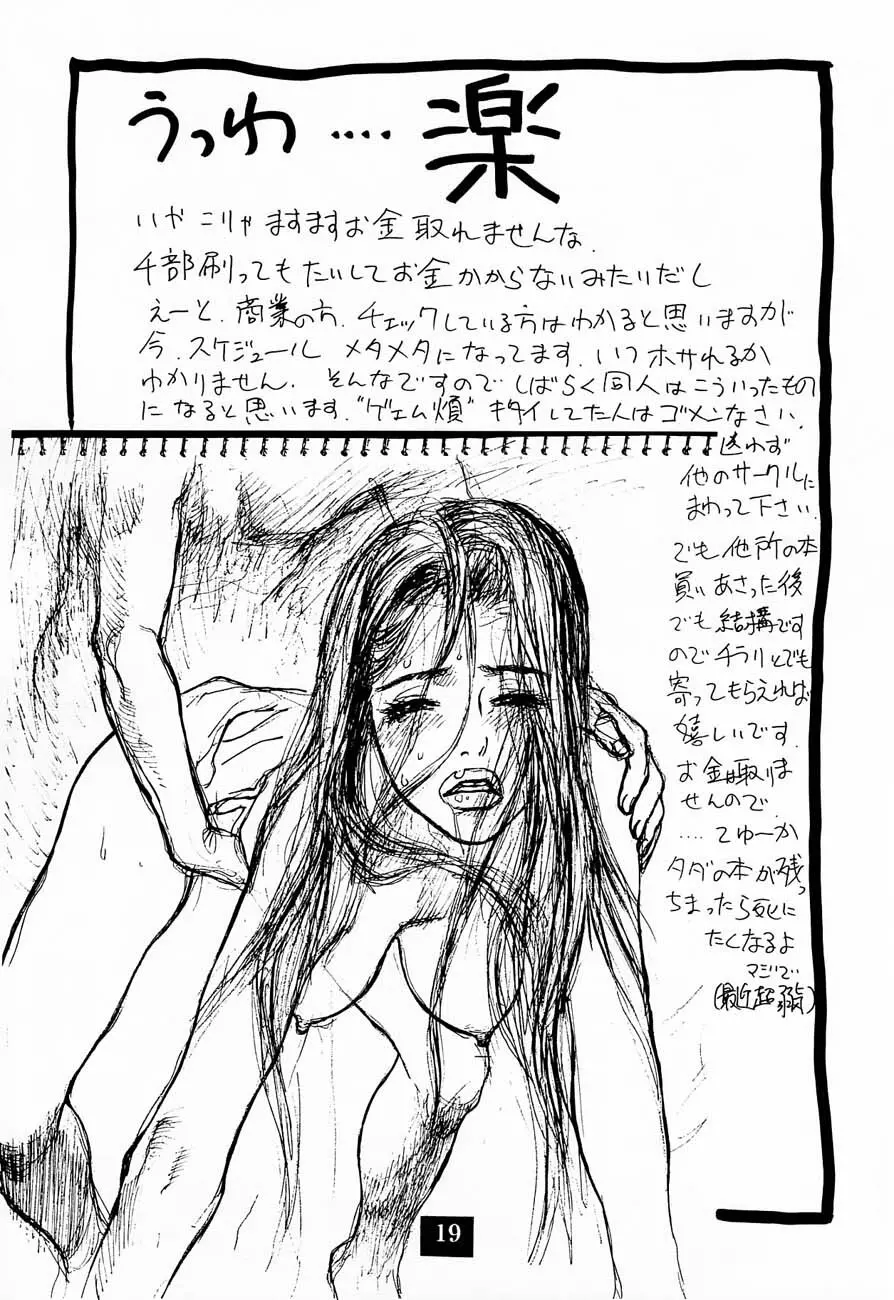 うっわ‥‥楽
いや こりゃ ますますお金取れませんな.
千部刷ってもたいしてお金かからないみたいだし
えーと、商業の方、チェックしている方はわかると思いますが
今、スケジュール メタメタになってます. いつホサれるか
わかりません. そんなですので しばらく同人はこういったもの
になると思います. "ゲェム煩" キタイしてた人はゴメンなさい.
迷わず
他のサークルに
まわって下さい.
でも他所の本
買いあさった後
でも結構です
のでチラリとでも
寄ってもらえれば
嬉しいです.
お金取りま
せんので.
‥‥てゆーか
タダの本が残っ
ちまったら死に
たくなるよ
マジで
(最近超弱)
19